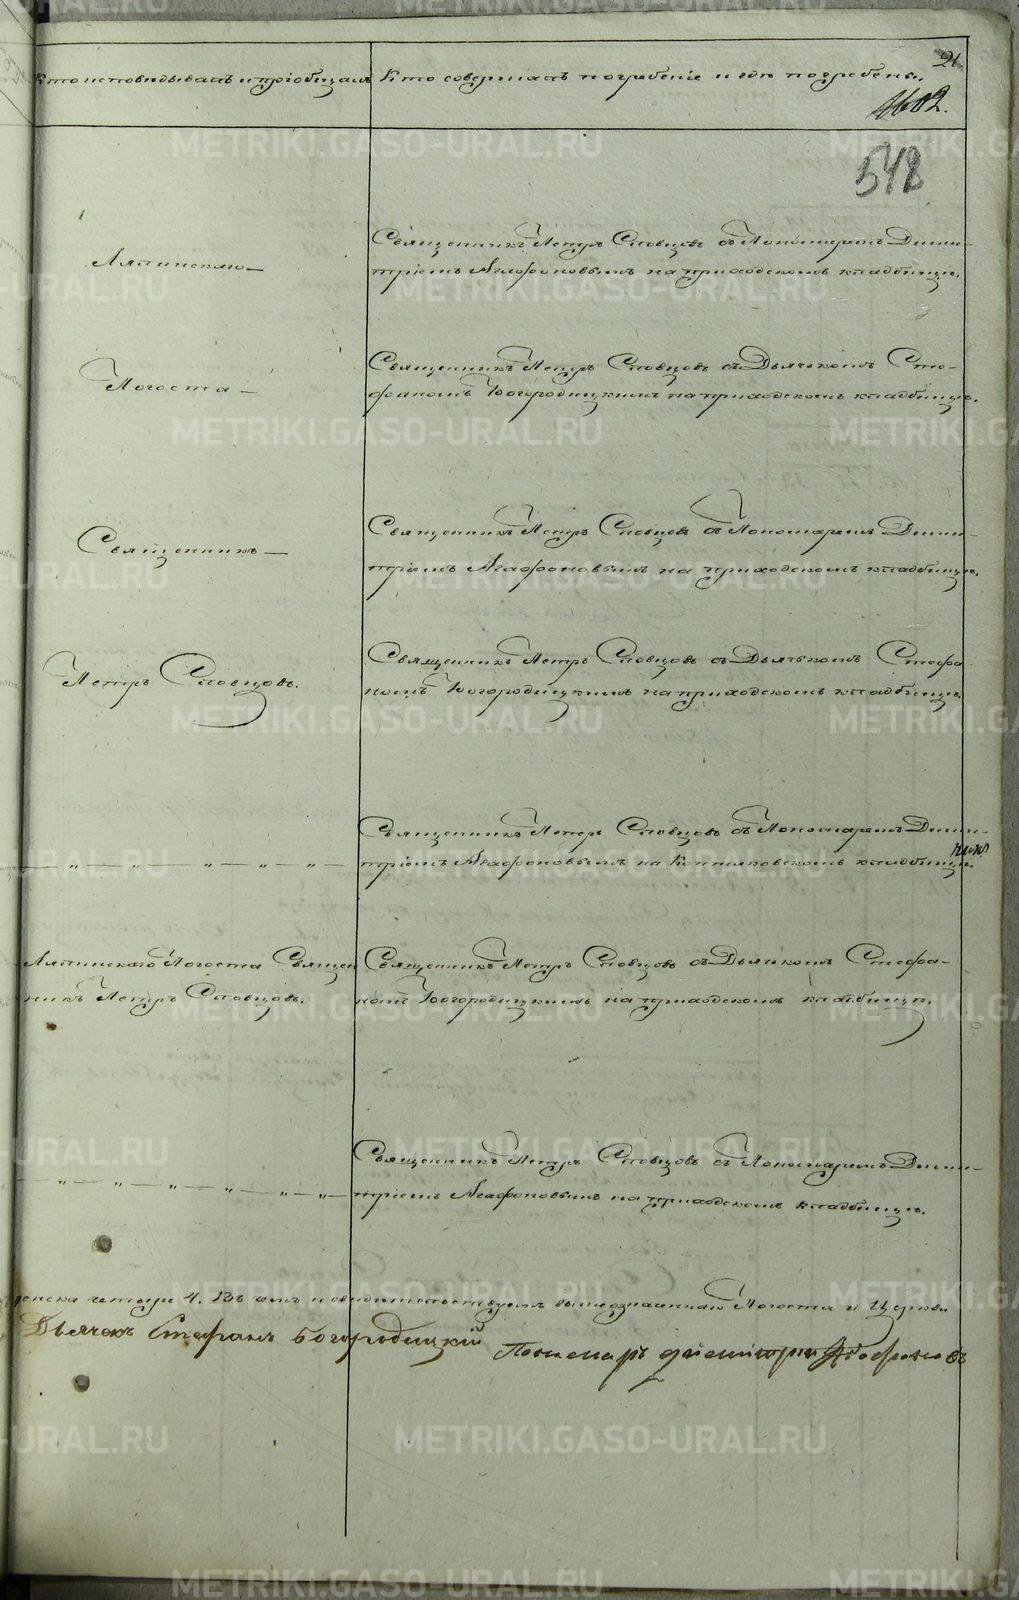 21.
Кто исповѣдывалъ и пріобщалъ
Кто совершалъ погребеніе и гдѣ погребены.
1602.
548
Ляпинскаго
Священникъ Петръ Словцовъ съ Пономаремъ Дими-
тріемъ Агафоновымъ на приходскомъ кладбищѣ.
Погоста
Священникъ Петръ Словцовъ съ Дьячкомъ Сте-
фаномъ Богородицкимъ на приходскомъ кладбищѣ.
Священникъ
Священникъ Петръ Словцовъ съ Пономаремъ Дими-
тріемъ Агафоновымъ на приходскомъ кладбищѣ.
Петръ Словцовъ.
Священникъ Петръ Словцовъ съ Дьячкомъ Стефа-
номъ Богородицкимъ на приходскомъ кладбищѣ.
Священникъ Петръ Словцовъ съ Пономаремъ Дими-
тріемъ Агафоновымъ на кладбищѣ.
Ляпинскаго Погоста Священ
никъ Петръ Словцовъ.
Священникъ Петръ Словцовъ съ Дьячкомъ Стефа-
номъ Богородицкимъ на приходскомъ кладбищѣ.
Священникъ Петръ Словцовъ съ Пономаремъ Дими-
тріемъ Агафоновымъ на приходскомъ кладбищѣ.
женска четыре 4. Въ чемъ и свидѣтельствуемъ вышеозначеннаго Погоста и Церкви
Дьячекъ Стефанъ Богородицкій
Пономарь Димитрій Агафоновъ
METRIKI.GASO-URAL.RU